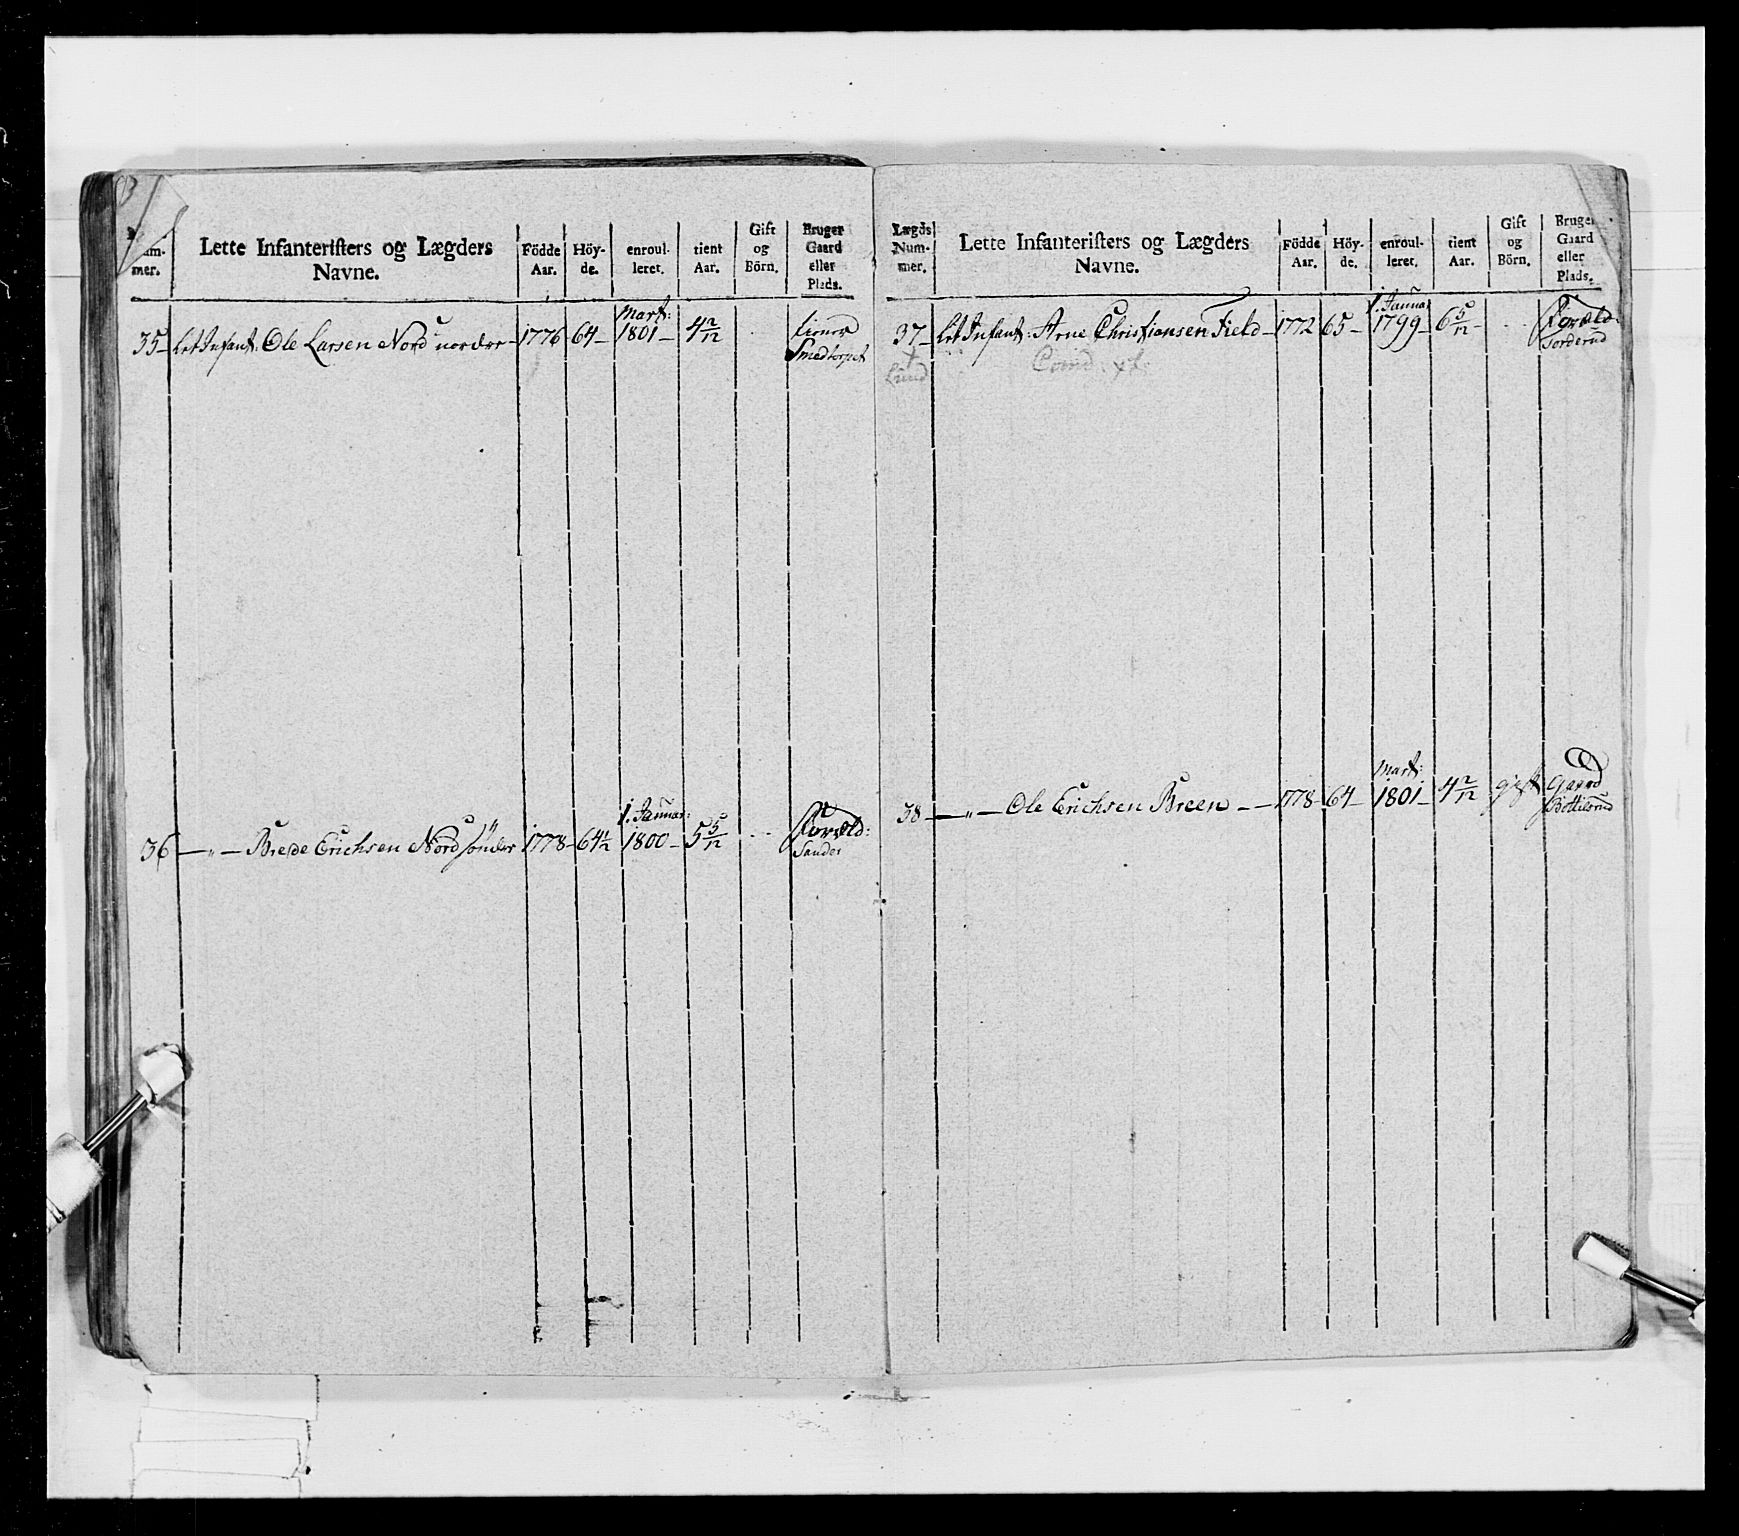 Lette Infanteristers og Lægders Navne.
Födde Aar.
Höy-de.
enroul-leret.
tient Aar.
Gift og Börn.
Bruger Gaard eller Plads.
35 Let Infant: Ole Larsen Nord nordre 1776 64 Mart: 1801 4 2/12 tiener Smedtorpet
36 — " — Brede Erichsen Nord sönder 1778 64½ 1. Januar: 1800 5 5/12 Foræld: Sander
Lægds Num-mer.
Lette Infanteristers og Lægders Navne.
Födde Aar.
Höy-de.
enroul-leret.
tient Aar.
Gift og Börn.
Bruger Gaard eller Plads.
37 Let Infant: Arne Christiansen Field 1772 65 1. Janua 1799 6 5/12 Foræld: Torderud
Lund
38 — " — Ole Erichsen Breen 1778 64 Mart: 1801 4 2/12 gift Gaard Bottilsrud